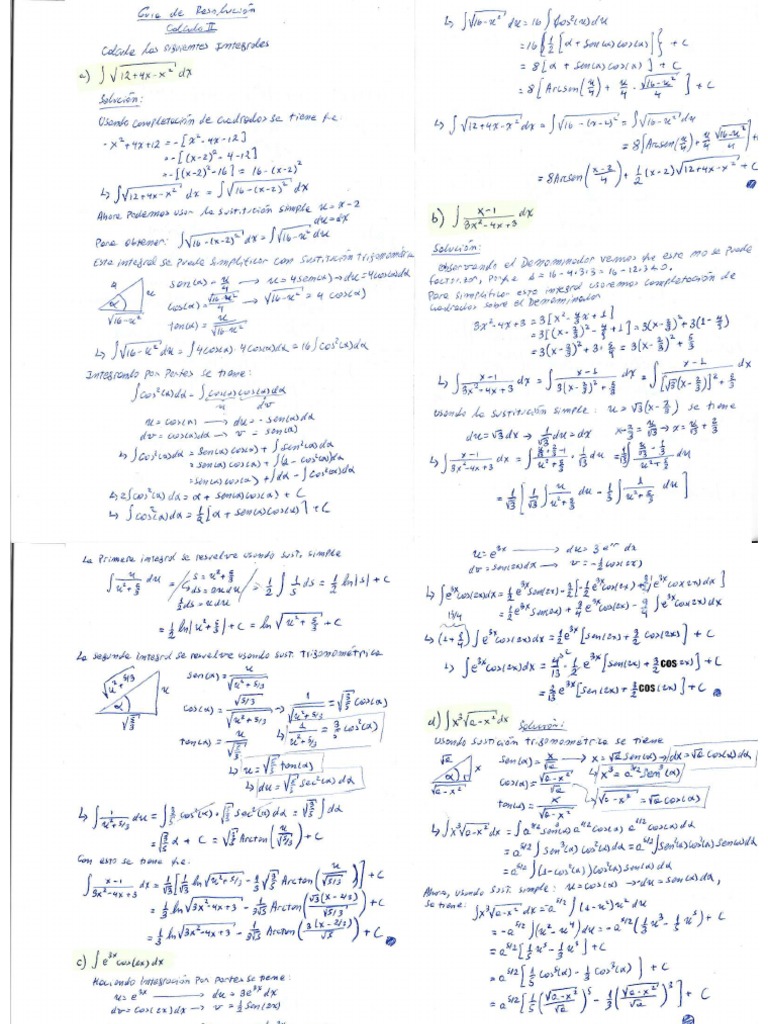 Guia de Resolución
Calculo II
Calcule las siguientes Integrales
a) ∫√(12+4x-x²) dx
Solución:
Usando completación de cuadrados se tiene que:
-x²+4x+12 = -[x²-4x-12]
= -[(x-2)²-4-12]
= -[(x-2)²-16] = 16-(x-2)²
↳ ∫√(12+4x-x²) dx = ∫√(16-(x-2)²) dx
Ahora Podemos usar la sustitución simple u = x-2
du = dx
Para obtener: ∫√(16-(x-2)²) dx = ∫√(16-u²) du
Esta integral se puede simplificar con sustitución trigonométrica
4 u α √(16-u²)
sen(α) = u/4 → u = 4sen(α) → du = 4cos(α)dα
cos(α) = √(16-u²)/4 → √(16-u²) = 4 cos(α)
tan(α) = u/√(16-u²)
↳ ∫√(16-u²) du = ∫4cos(α)·4cos(α)dα = 16∫cos²(α)dα
Integrando por partes se tiene:
∫cos²(α)dα = ∫cos(α)cos(α)dα
u dv
u = cos(α) → du = -sen(α)dα
dv = cos(α)dα → v = sen(α)
↳ ∫cos²(α)dα = sen(α)cos(α) + ∫sen²(α)dα
= sen(α)cos(α) + ∫(1-cos²(α))dα
= sen(α)cos(α) + ∫dα - ∫cos²(α)dα
↳ 2∫cos²(α)dα = α + sen(α)cos(α) + C
↳ ∫cos²(α)dα = 1/2[α + sen(α)cos(α)] + C
↳ ∫√(16-u²) du = 16∫cos²(α)dα
= 16{1/2[α + sen(α)cos(α)]} + C
= 8[α + sen(α)cos(α)] + C
= 8[Arcsen(u/4) + u/4 · √(16-u²)/4] + C
↳ ∫√(12+4x-x²) dx = ∫√(16-(x-2)²) dx = ∫√(16-u²) du
= 8[Arcsen(u/4) + u/4 √(16-u²)/4] + C
= 8Arcsen((x-2)/4) + 1/2(x-2)√(12+4x-x²) + C
b) ∫ (x-1)/(3x²-4x+3) dx
Solución:
Observando el Denominador vemos que este no se puede
factorizar, porque Δ = 16-4·3·3 = 16-12·3 < 0.
Para simplificar esta integral usaremos completación de
cuadrados sobre el Denominador
3x²-4x+3 = 3[x²-4/3x+1]
= 3[(x-2/3)²-4/9+1] = 3(x-2/3)²+3(1-4/9)
= 3(x-2/3)²+3·5/9 = 3(x-2/3)²+5/3
↳ ∫ (x-1)/(3x²-4x+3) dx = ∫ (x-1)/(3(x-2/3)²+5/3) dx = ∫ (x-1)/([√3(x-2/3)]²+5/3) dx
Usando la sustitución simple: u = √3(x-2/3) se tiene
du = √3 dx → 1/√3 du = dx x-2/3 = u/√3 → x = u/√3+2/3
↳ ∫ (x-1)/(3x²-4x+3) dx = ∫ (u/√3+2/3-1)/(u²+5/3) · 1/√3 du = 1/√3 ∫ (u/√3-1/3)/(u²+5/3) du
= 1/√3 [1/√3 ∫ u/(u²+5/3) du - 1/3 ∫ 1/(u²+5/3) du]
La Primera integral se resuelve usando sust. simple
∫ u/(u²+5/3) du = s = u²+5/3 = 1/2 ∫ 1/s ds = 1/2 ln|s| + C
ds = 2u du
1/2 ds = u du
= 1/2 ln|u²+5/3| + C = ln√(u²+5/3) + C
La segunda integral se resuelve usando sust. Trigonométrica
√(u²+5/3) u α √(5/3)
sen(α) = u/√(u²+5/3)
cos(α) = √(5/3)/√(u²+5/3) → 1/√(u²+5/3) = √(3/5) cos(α)
↳ 1/(u²+5/3) = 3/5 cos²(α)
tan(α) = u/√(5/3)
↳ u = √(5/3) tan(α)
↳ du = √(5/3) sec²(α) dα
↳ ∫ 1/(u²+5/3) du = ∫ 3/5 cos²(α)·√(5/3) sec²(α) dα = √(3/5) ∫ dα
= √(3/5) α + C = √(3/5) Arctan(u/√(5/3)) + C
Con esto se tiene que:
∫ (x-1)/(3x²-4x+3) dx = 1/√3 [1/√3 ln√(u²+5/3) - 1/3 √(3/5) Arctan(u/√(5/3))] + C
= 1/3 ln√(3x²-4x+3) - 1/(3√5) Arctan(√3(x-2/3)/√(5/3)) + C
= 1/3 ln√(3x²-4x+3) - 1/(3√5) Arctan(3(x-2/3)/√5) + C
c) ∫ e³ˣ cos(2x) dx
Haciendo Integración Por partes se tiene:
u = e³ˣ → du = 3e³ˣ dx
dv = cos(2x)dx → v = 1/2 sen(2x)
u = e³ˣ → du = 3 e³ˣ dx
dv = sen(2x)dx → v = -1/2 cos(2x)
↳ ∫e³ˣcos(2x)dx = 1/2 e³ˣ sen(2x) - 3/2[-1/2 e³ˣcos(2x) + 3/2 ∫e³ˣcos(2x)dx]
= 1/2 e³ˣ sen(2x) + 3/4 e³ˣcos(2x) - 9/4 ∫ e³ˣcos(2x)dx
13/4
↳ (1+9/4) ∫ e³ˣ cos(2x)dx = 1/2 e³ˣ [sen(2x) + 3/2 cos(2x)] + C
↳ ∫ e³ˣ cos(2x)dx = 4/13 · 1/2 e³ˣ [sen(2x) + 3/2 cos(2x)] + C
= 2/13 e³ˣ [sen(2x) + 3/2 cos(2x)] + C
d) ∫ x³√(a-x²) dx Solución:
Usando sustición trigonométrica se tiene
√a x α √(a-x²)
sen(α) = x/√a → x = √a sen(α) → dx = √a cos(α) dα
↳ x³ = a^(3/2) sen³(α)
cos(α) = √(a-x²)/√a
↳ √(a-x²) = √a cos(α)
tan(α) = x/√(a-x²)
↳ ∫x³√(a-x²) dx = ∫a^(3/2) sen³(α) a^(1/2) cos(α) a^(1/2) cos(α) dα
= a^(5/2) ∫ sen³(α) cos²(α) dα = a^(5/2) ∫ sen²(α) cos²(α) sen(α) dα
= a^(5/2) ∫ (1-cos²(α)) cos²(α) sen(α) dα
Ahora, usando sust. simple: u = cos(α) → -du = sen(α) dα,
se tiene: ∫x³√(a-x²) dx = -a^(5/2) ∫ (1-u²) u² du
= -a^(5/2) ∫ (u²-u⁴) du = -a^(5/2) (1/3 u³ - 1/5 u⁵) + C
= a^(5/2) [1/5 u⁵ - 1/3 u³] + C
= a^(5/2) [1/5 cos⁵(α) - 1/3 cos³(α)] + C
= a^(5/2) [1/5 (√(a-x²)/√a)⁵ - 1/3 (√(a-x²)/√a)³] + C